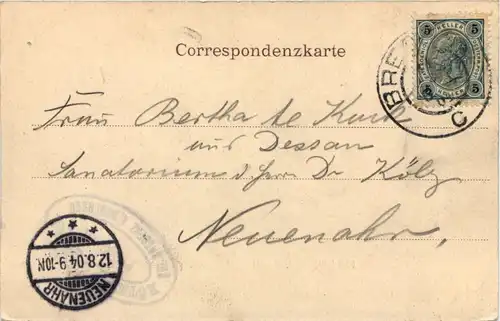 Correspondenzkarte
5 HELLER 5
BRE
C
Frau Bertha te Kock
aus Dessau
Sanatorium d. Herrn Dr Külz
Neuenahr,
12.8.04.9-10N.
NEUENAHR